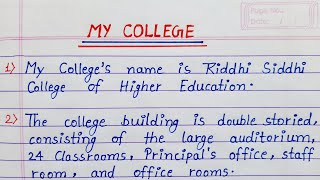 Page No.
Date
MY COLLEGE
1) My College's name is Riddhi Siddhi
College of Higher Education.
2) The college building is double storied,
consisting of the large auditorium,
24 Classrooms, Principal's office, staff
room, and office rooms.